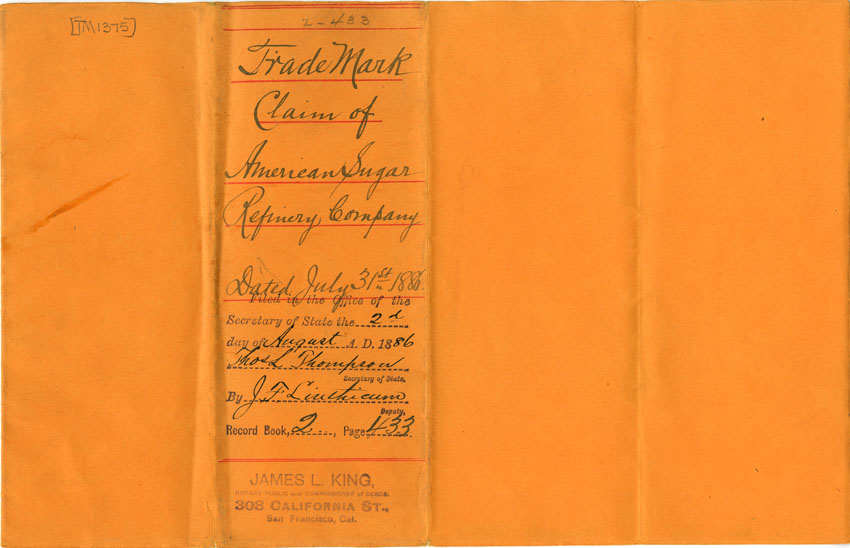 [TM1375]
2-433
Trade Mark
Claim of
American Sugar
Refinery Company
Dated July 31st 1886.
Filed in the Office of the
Secretary of State the 2d
day of August A. D. 1886
Thos L Thompson
Secretary of State,
By J. F. Linthicum
Deputy.
Record Book, 2, Page 433
JAMES L. KING,
NOTARY PUBLIC and COMMISSIONER of DEEDS,
308 CALIFORNIA ST.,
San Francisco, Cal.